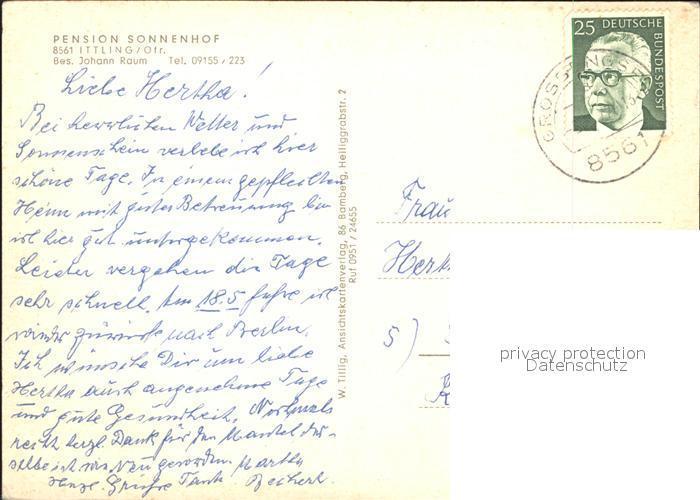 PENSION SONNENHOF
8561 ITTLING/Ofr.
Bes. Johann Raum Tel. 09155/223
Liebe Hertha!
Bei herrlichem Wetter und
Sonnenschein verlebe ich hier
schöne Tage. In einem gepflegten
Heim mit guter Betreuung bin
ich hier gut untergekommen.
Leider vergehen die Tage
sehr schnell. Am 18.5 fahre ich
wieder zurück nach Berlin.
Ich wünsche Dir um liebe
Hertha auch angenehme Tage
und gute Gesundheit. Nochmals
recht herzl. Dank für den Mantel der-
selbe ist wie Neu geworden. Martha
Herzl. Grüsse Tante
W. Tillig, Ansichtskartenverlag, 86 Bamberg, Heiliggrabstr. 2
Ruf 0951/24655
25 DEUTSCHE
BUNDESPOST
8561
Frau
Herth
5)
privacy protection
Datenschutz